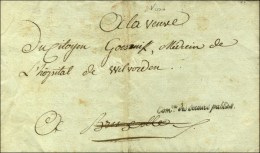 A la veuve
Du Citoyen Goesnif, Médecin de
L'hôpital de Wilvorden.
Com.re des secours publics
A Bruxelles